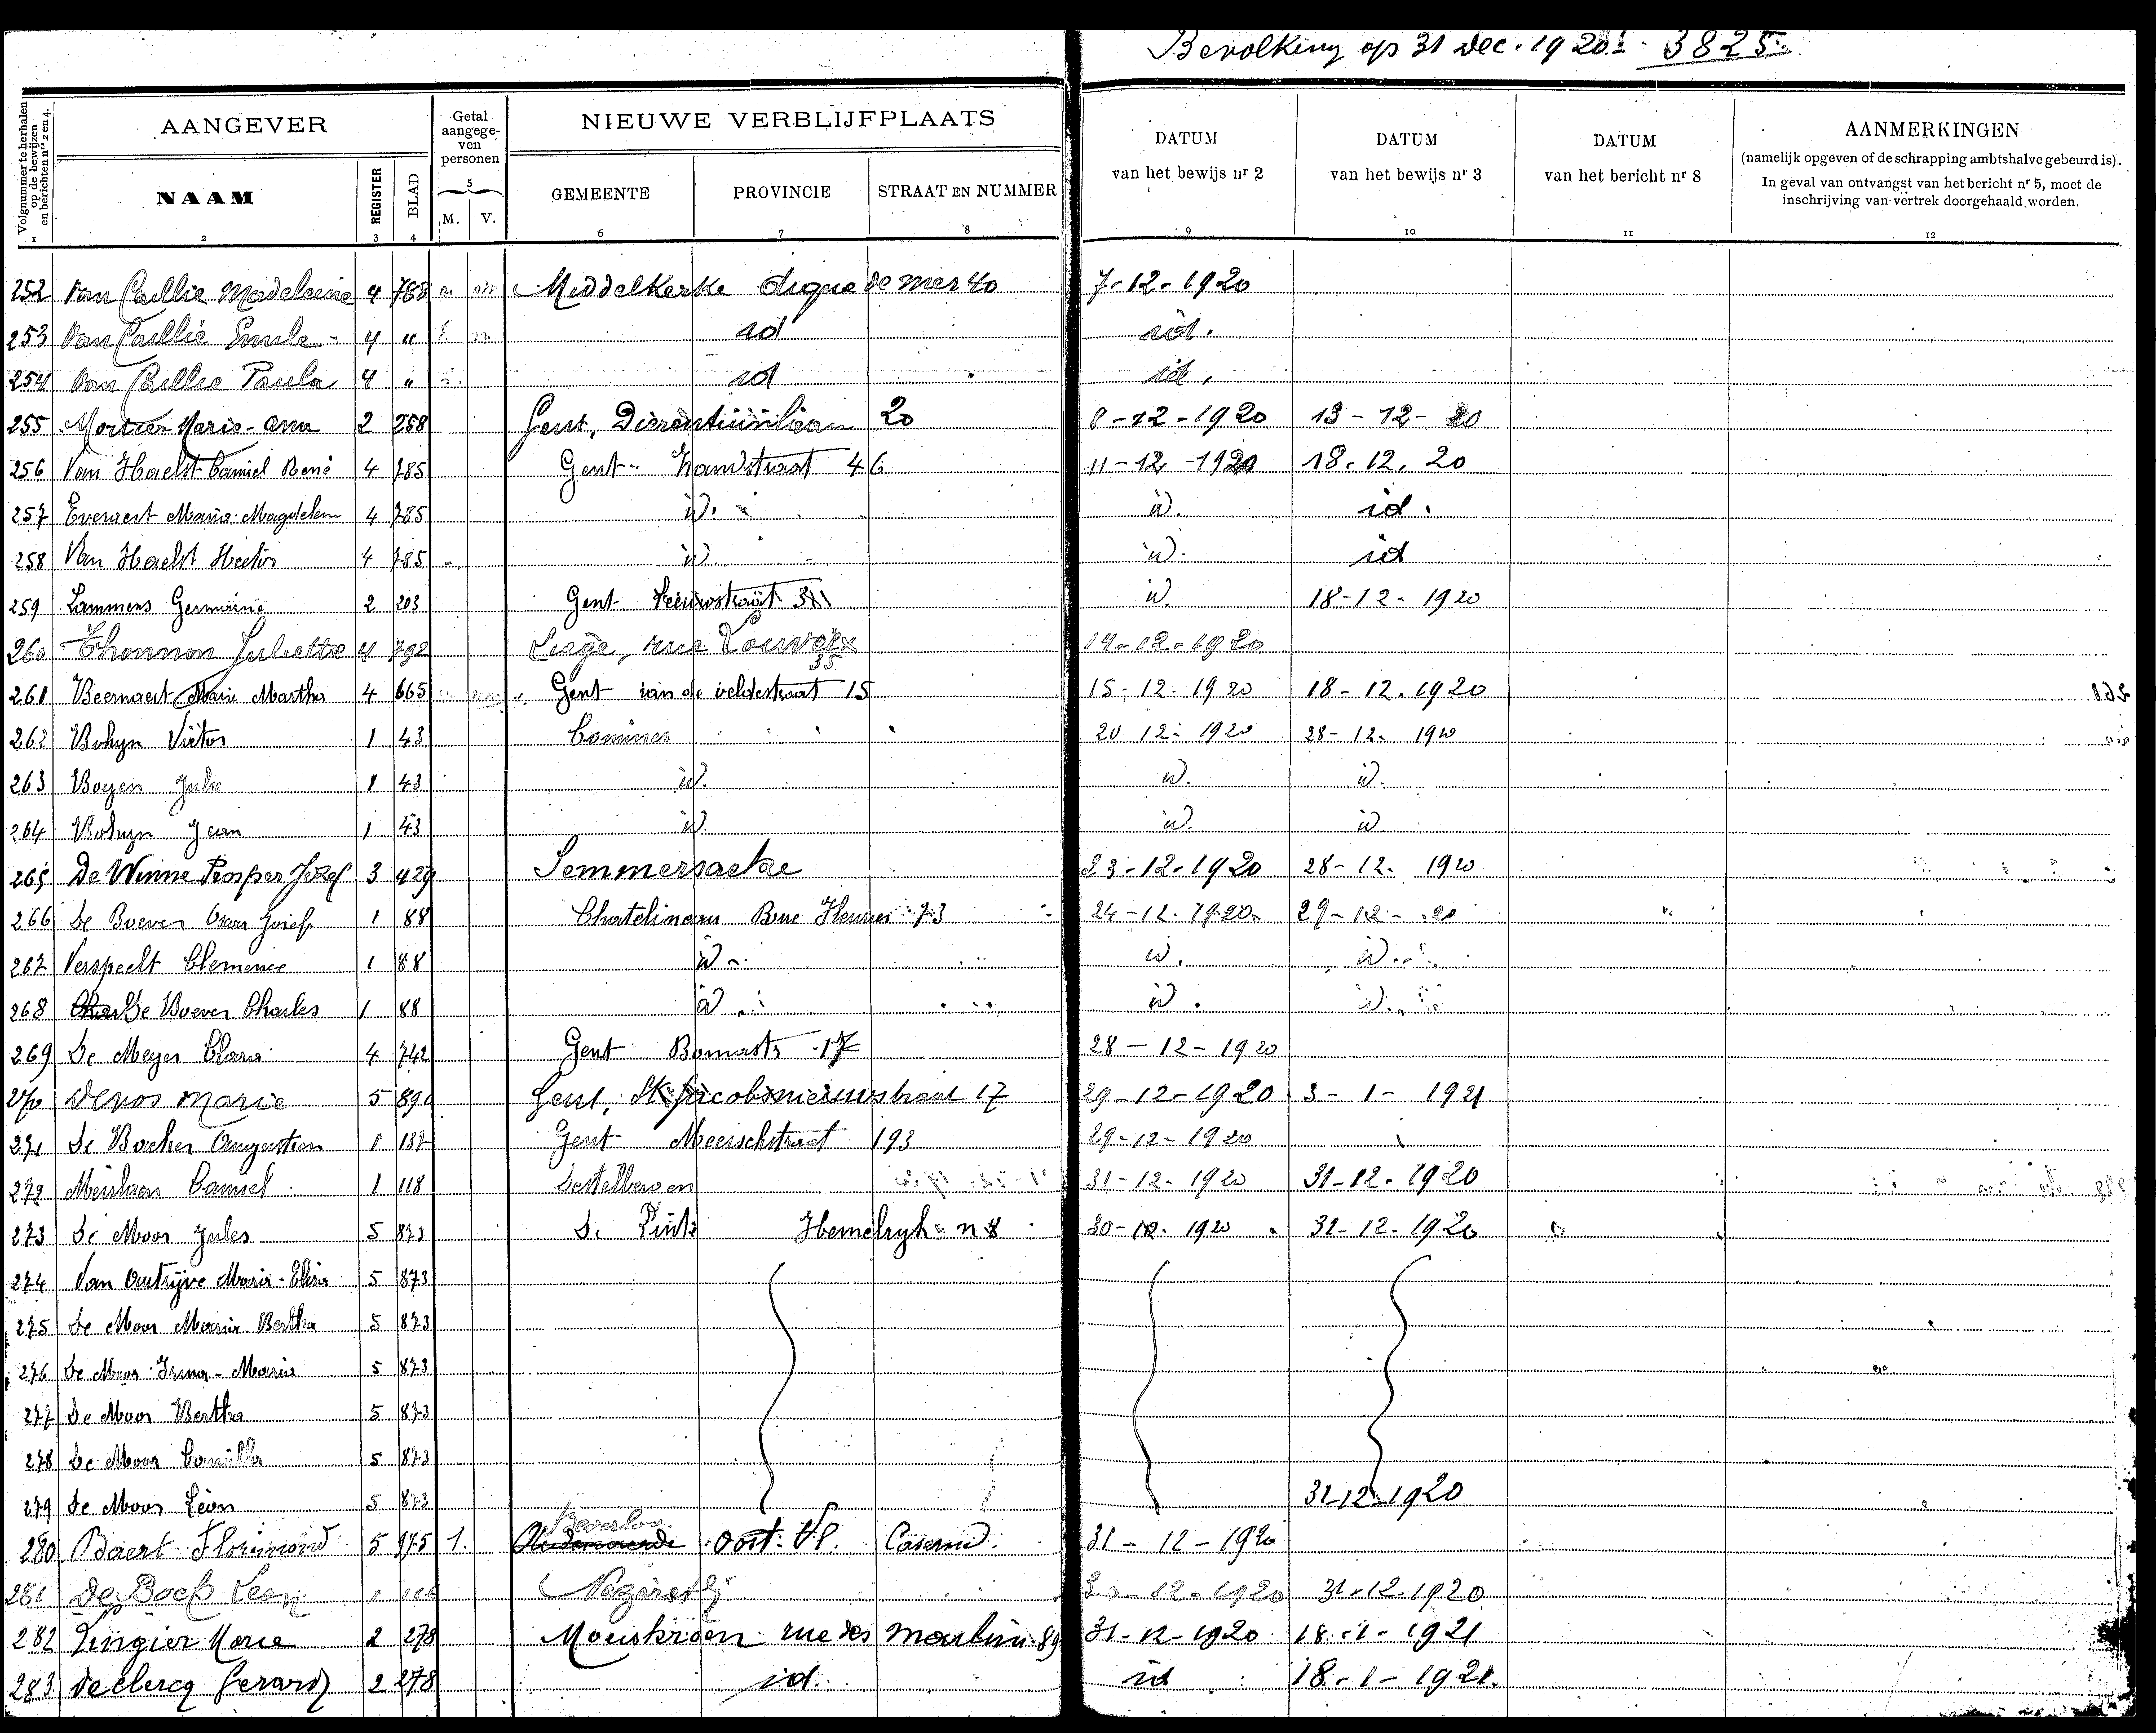 Bevolking op 31 Dec. 1920 - 3825
Volgnummer te herhalen op de bewijzen en berichten nrs 2 en 4.
AANGEVER
Getal aangege-ven personen
NIEUWE VERBLIJFPLAATS
DATUM van het bewijs nr 2
DATUM van het bewijs nr 3
DATUM van het bericht nr 8
AANMERKINGEN
(namelijk opgeven of de schrapping ambtshalve gebeurd is).
In geval van ontvangst van het bericht nr 5, moet de
inschrijving van vertrek doorgehaald worden.
NAAM REGISTER BLAD 5 M. V. GEMEENTE PROVINCIE STRAAT EN NUMMER
1 2 3 4 6 7 8 9 10 11 12
252 Van Caillie Madeleine 4 788 Middelkerke digue de mer 40 7-12-1920
253 Van Caillie Emile 4 " id id.
254 Van Caillie Paula 4 " id id.
255 Mortier Marie-Anna 2 258 Gent, Dierentuinlaan 20 8-12-1920 13-12-20
256 Van Haelst Camiel René 4 785 Gent Zandstraat 46 11-12-1920 18.12.20
257 Everaert Maria-Magdelena 4 785 id. id. id.
258 Van Haelst Hector 4 785 id. id. id
259 Lammens Germaine 2 203 Gent Leeuwstraat id. 18-12-1920
260 Thonnon Juliette 4 792 Liege, rue Louvrex 35 14-12-1920
261 Beernaert Marie Martha 4 665 Gent van de veldestraat 15 15-12-1920 18-12-1920
262 Bohyn Victor 1 43 Comines 20 12-1920 28-12-1920
263 Boyen Julie 1 43 id. id. id.
264 Bohyn Jean 1 43 id. id. id
265 De Winne Prosper Jozef 3 429 Semmersacke 23-12-1920 28-12-1920
266 De Boever Oscar Jozief 1 88 Chatelineau Rue 73 24-12-1920 29-12-20
267 Verspeelt Clemence 1 88 id id. id
268 De Boever Charles 1 88 id id. id
269 De Meyer Clara 4 742 Gent Bomastr 17 28-12-1920
270 Devos Marie 5 890 Gent, St Jacobsnieuwstraat 17 29-12-1920 3-1-1921
271 De Backer Augustien 1 137 Gent Meerschstraat 193 29-12-1920
272 Camiel 1 118 Destelbergen 31-12-1920 31-12-1920
273 De Moor Jules 5 873 De Pinte Hemelryk n 8 30-12-1920 31-12-1920
274 Van Outrijve Maria-Elisa 5 873
275 De Moor Maria Bertha 5 873
276 De Moor Irma-Maria 5 873
277 De Moor Bertha 5 873
278 De Moor Camilla 5 873
279 De Moor Léon 5 873 31-12-1920
Beverloo
280 Baert Florimond 5 975 1. Audenaerde Oost-Vl. Caserne 31-12-1920
281 De Bock Leon Nazareth 12-1920 31-12-1920
282 Lingier Marie 2 278 Mouskroen rue des moulins 89 31-12-1920 18-1-1921
283 Declercq Gerard 2 278 id. id 18-1-1921.